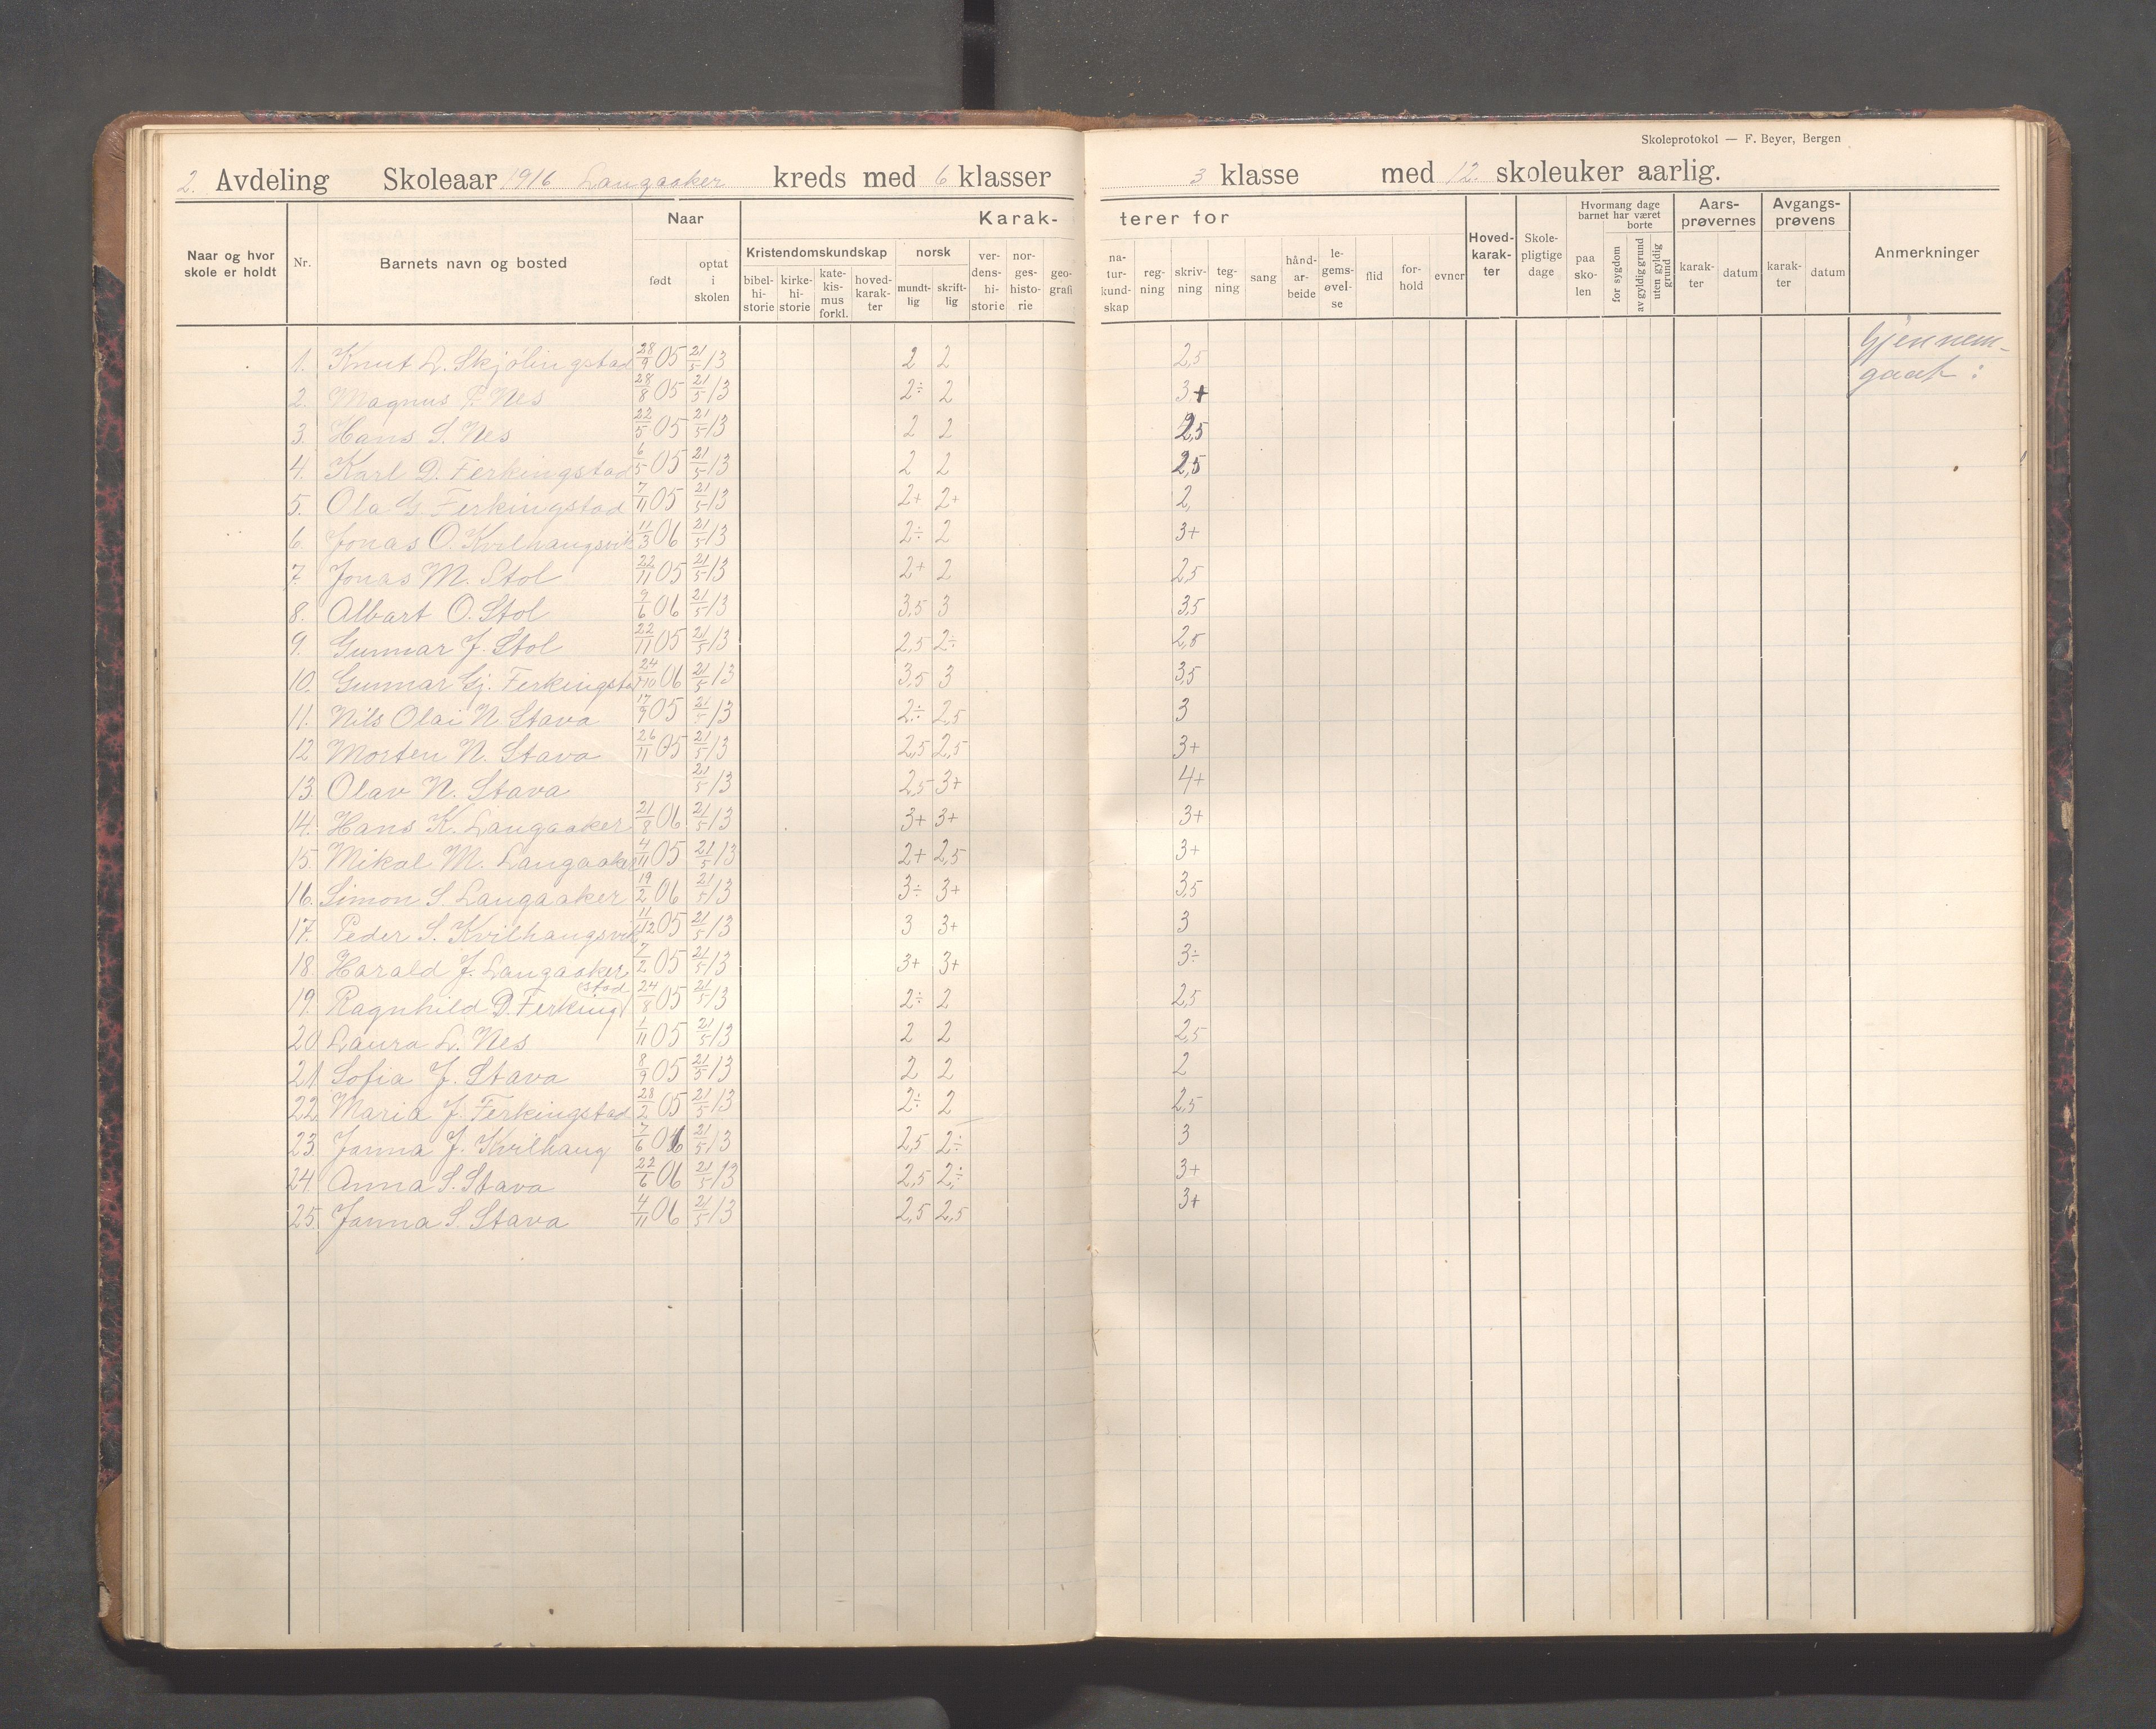 Skoleprotokol — F. Beyer, Bergen
2. Avdeling Skoleaar 1916 Langaaker kreds med 6 klasser 3 klasse med 12. skoleuker aarlig.
Naar og hvor skole er holdt
Nr.
Barnets navn og bosted
Naar
født
optat i skolen
Karak-
terer for
Kristendomskundskap
bibel-hi-storie
kirke-hi-storie
kate-kis-mus forkl.
hoved-karak-ter
norsk
mundt-lig
skrift-lig
ver-dens-hi-storie
nor-ges-histo-rie
geo-grafi
na-tur-kund-skap
reg-ning
skriv-ning
teg-ning
sang
hånd-ar-beide
le-gems-øvel-se
flid
for-hold
evner
Hoved-karak-ter
Skole-pligtige dage
Hvormang dage barnet har været
paa sko-len
borte
for sygdom
av gyldig grund
uten gyldig grund
Aars-prøvernes
karak-ter
datum
Avgangs-prøvens
karak-ter
datum
Anmerkninger
Gjennem-
gaat:
1. Knut L. Skjølingstad 28/9 05 21/5 13 2 2 2,5
2. Magnus P. Nes 28/8 05 21/5 13 2÷ 2 3+
3. Hans S. Nes 22/5 05 21/5 13 2 2 2,5
4. Karl D. Ferkingstad 6/5 05 21/5 13 2 2 2,5
5. Ola G. Ferkingstad 7/11 05 21/5 13 2+ 2+ 2,
6. Jonas O. Kvilhaugsvik 11/3 06 21/5 13 2÷ 2 3+
7. Jonas M. Stol 22/11 05 21/5 13 2+ 2 2,5
8. Albart O. Stol 9/6 06 21/5 13 3,5 3 3,5
9. Gunnar J. Stol 22/11 05 21/5 13 2,5 2÷ 2,5
10. Gunnar Gj. Ferkingstad 24/10 06 21/5 13 3,5 3 3,5
11. Nils Olai N. Stava 17/9 05 21/5 13 2÷ 2,5 3
12 Morten N. Stava 26/11 05 21/5 13 2,5 2,5 3+
13 Olav N. Stava 21/5 13 2,5 3+ 4+
14. Hans K. Langaaker 21/8 06 21/5 13 3+ 3+ 3+
15. Mikal M. Langaaker 4/11 05 21/5 13 2+ 2,5 3+
16. Simon S. Langaaker 19/2 06 21/5 13 3÷ 3+ 3,5
17. Peder S. Kvilhaugsvik 11/12 05 21/5 13 3 3+ 3
18. Harald J. Langaaker 7/2 05 21/5 13 3+ 3+ 3÷
19. Ragnhild D. Ferking(stad 24/8 05 21/5 13 2÷ 2 2,5
20 Laura L. Nes 1/11 05 21/5 13 2 2 2,5
21 Sofia J. Stava 8/9 05 21/5 13 2 2 2
22 Maria J. Ferkingstad 28/2 05 21/5 13 2÷ 2 2,5
23. Janna J. Kvilhaug 7/6 06 21/5 13 2,5 2÷ 3
24. Anna S. Stava 22/6 06 21/5 13 2,5 2÷ 3+
25. Janna S. Stava 4/11 06 21/5 13 2,5 2,5 3+